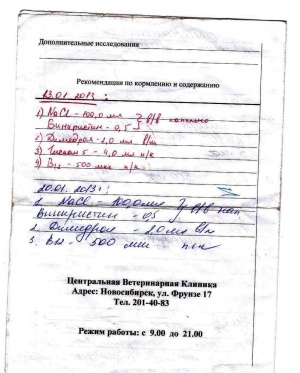 Дополнительные исследования
Рекомендации по кормлению и содержанию
13.01.2013 :
1) NaCl - 100,0 мл } в/в капельно
Винкристин - 0,5
2) Димедрол - 1,0 мл в/м
4,0 мл п/к
4) B12 - 500 мкг п/к
20.01.2013 :
1. NaCl - 100,0 мл } в/в кап
Винкристин - 0,5
2. Димедрол - 1,0 мл в/м
3. B12 - 500 мкг п/к
Центральная Ветеринарная Клиника
Адрес: Новосибирск, ул. Фрунзе 17
Тел. 201-40-83
Режим работы: с 9.00 до 21.00